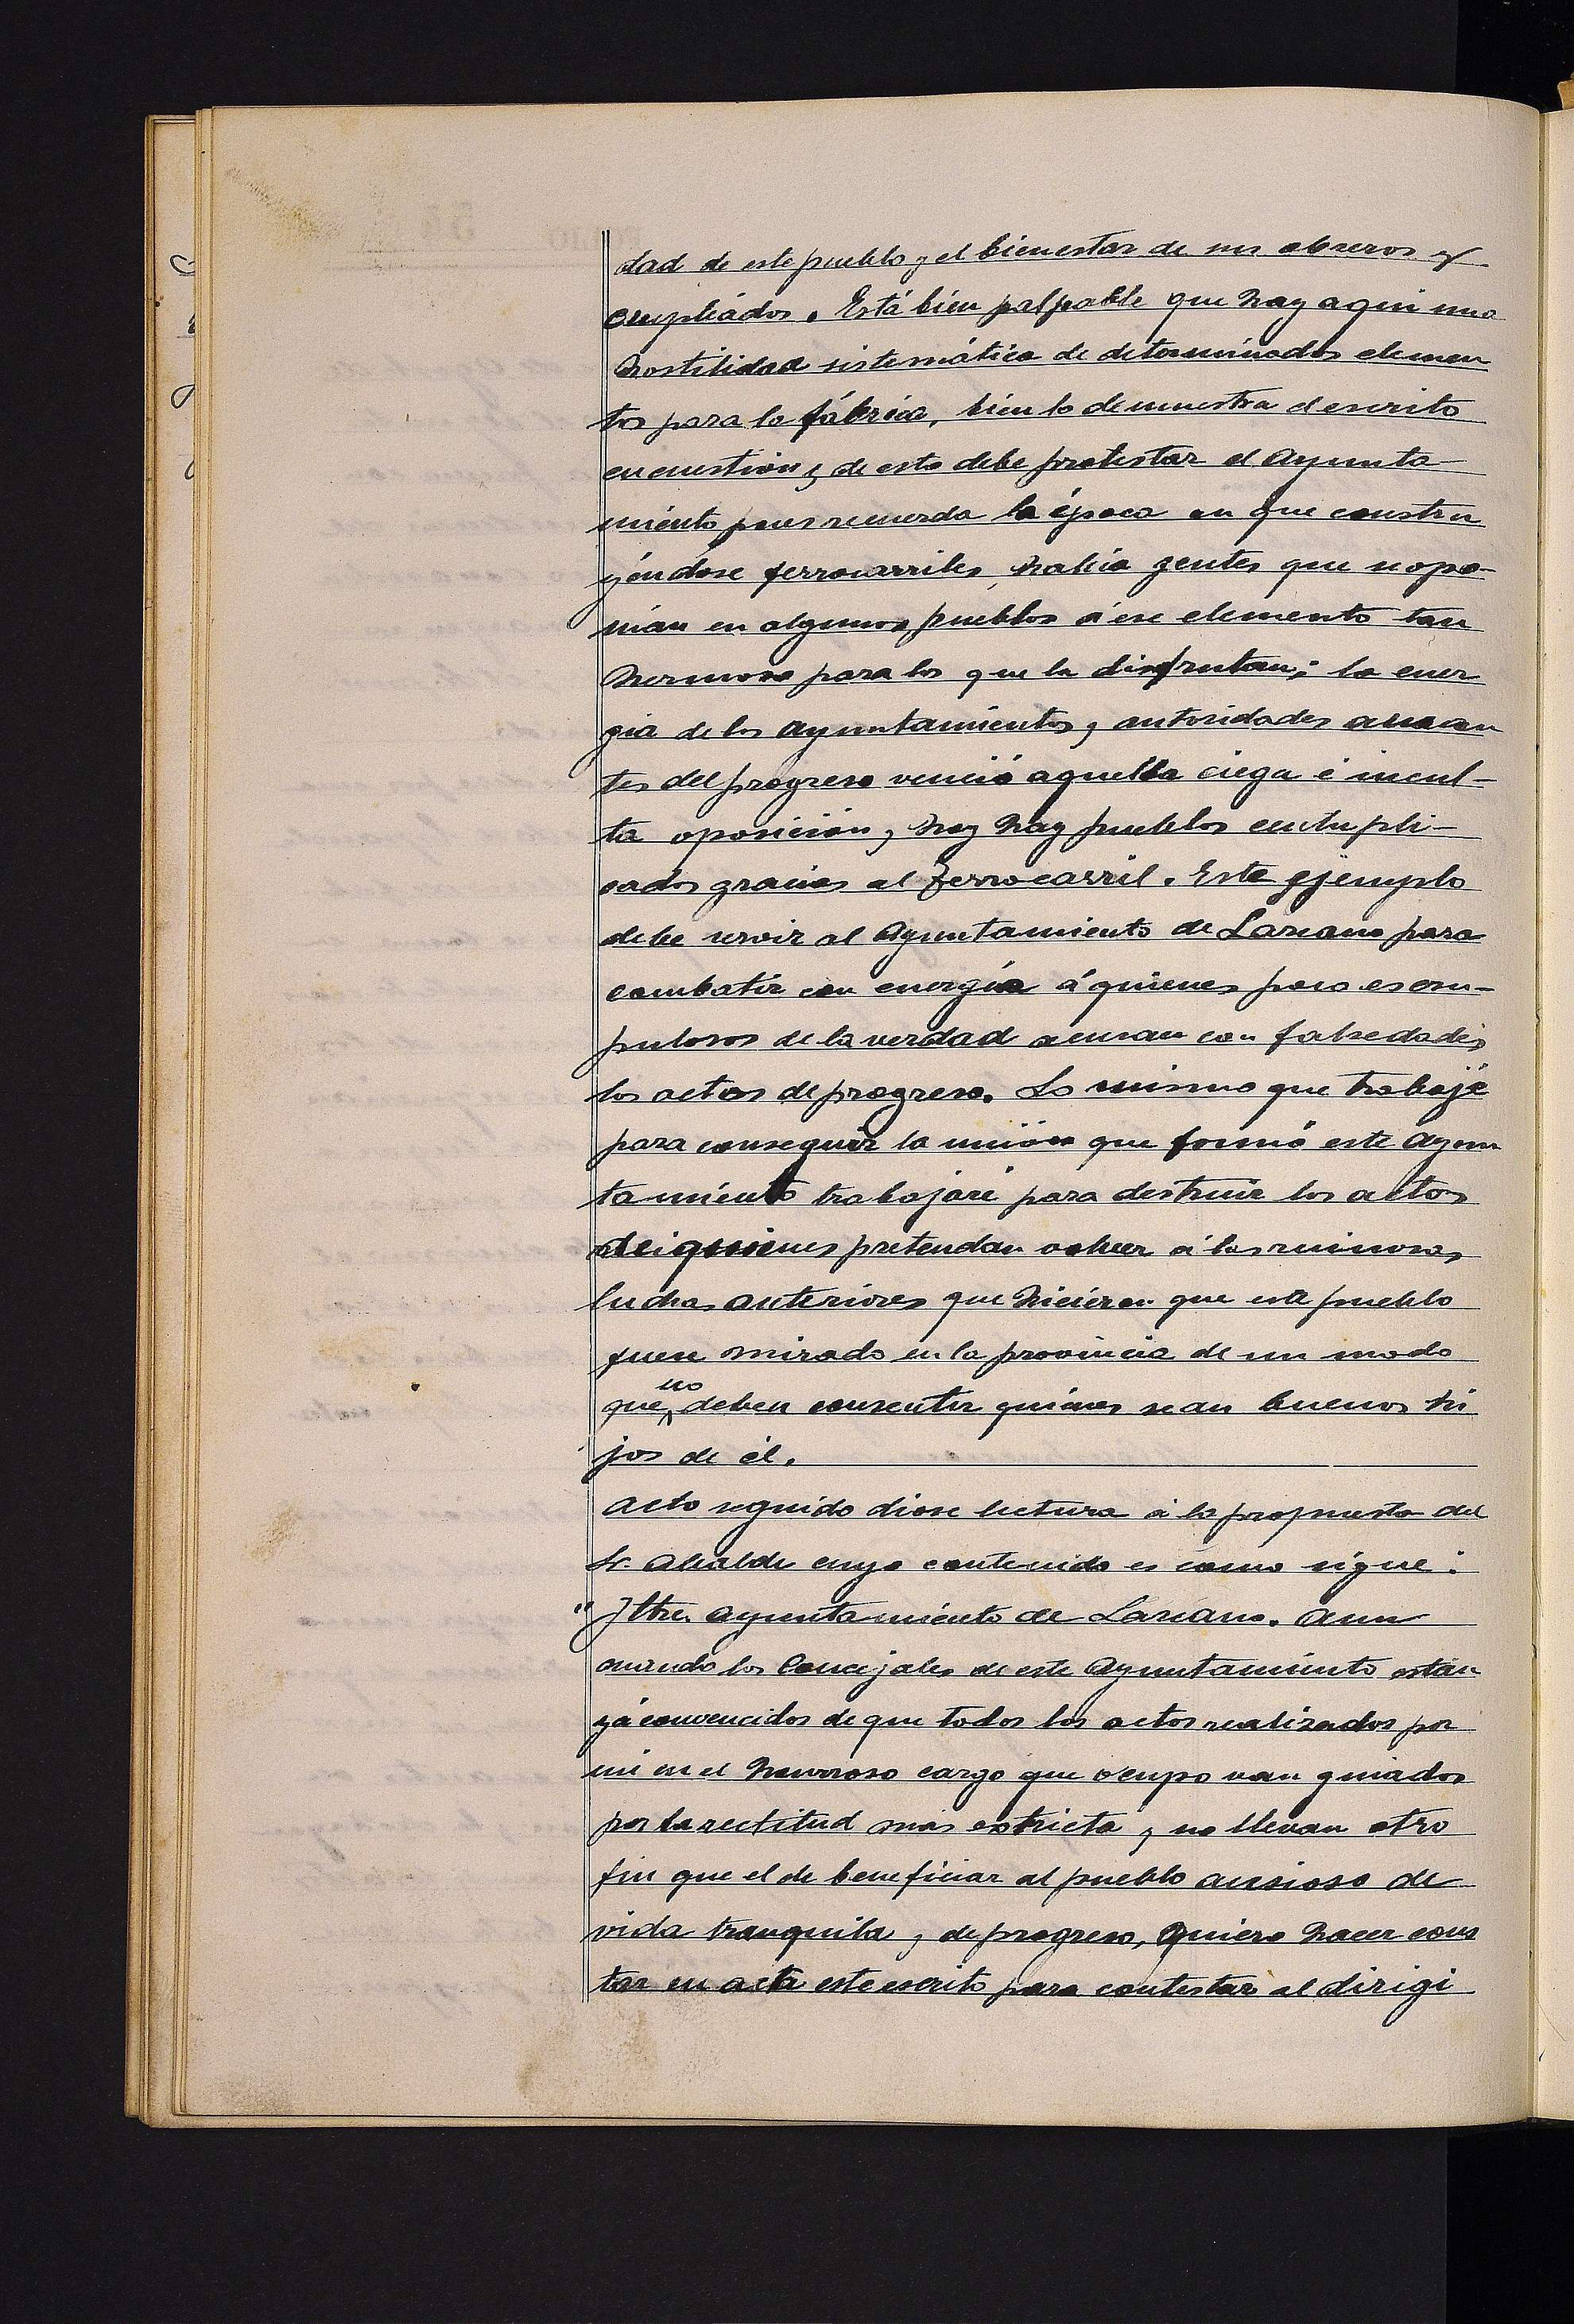 dad de este pueblo y el bienestar de sus obreros y
empleados. Está bien palpable que hay aquí una
hostilidad sistemática de determinados elemen
tos para la fábrica, bien lo demuestra el escrito
en cuestión y de esto debe protestar el Ayunta-
miento pues recuerda la época en que constru
yéndose ferrocarriles, había gentes que se opo-
nían en algunos pueblos á ese elemento tan
hermoso para los que lo disfrutan; la ener
gía de los Ayuntamientos y autoridades aman
tes del progreso venció aquella ciega é incul-
ta oposición y hoy hay pueblos centupli-
cados gracias al ferrocarril. Este ejemplo
debe servir al Ayuntamiento de Lazcano para
combatir con energía á quienes poco escru-
pulosos de la verdad acusan con falsedades
los actos de progreso. Lo mismo que trabajé
para conseguir la unión que formó este Ayun
tamiento trabajaré para destruir los actos
de quienes pretendan volver á las ruinosas
luchas anteriores que hicieron que este pueblo
fuese mirado en la provincia de un modo
que no deben consentir quienes sean buenos hi
jos de él.
Acto seguido dióse lectura á la propuesta del
Sr. Alcalde cuyo contenido es como sigue:
"Iltre. Ayuntamiento de Lazcano. Aun
cuando los Concejales de este Ayuntamiento están
yá convencidos de que todos los actos realizados por
mi en el honroso cargo que ocupo van guiados
por la rectitud más estricta y no llevan otro
fin que el de beneficiar al pueblo ansioso de
vida tranquila y de progreso, quiero hacer cons
tar en acta este escrito para contestar al dirigi